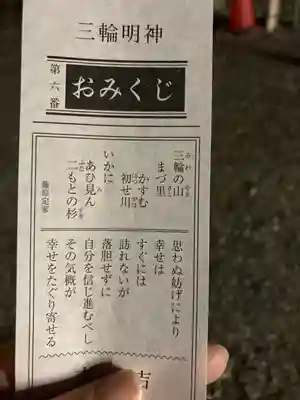 三輪明神
第六番
おみくじ
三輪の山
まづ里
かすむ
初せ川
いかに
あひ見ん
二もとの杉
藤原定家
思わぬ妨げにより
幸せは
すぐには
訪れないが
落胆せずに
自分を信じ進むべし
その気概が
幸せをたぐり寄せる
吉